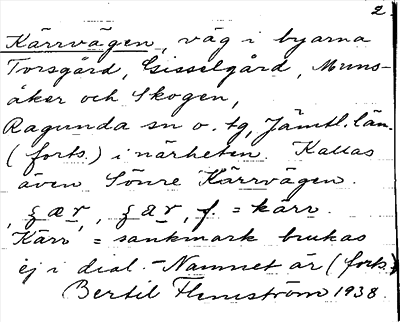 2
Kärrvägen, väg i byarna
Torsgård, Gisselgård, Muns-
åker och Skogen,
Ragunda sn o. tg, Jämtl. län.
(forts.) i närheten. Kallas
även Sönre Kärrvägen.
f. = kärr.
Kärr = sankmark brukas
ej i dial. - Namnet är (forts.)
Bertil Flemström 1938.